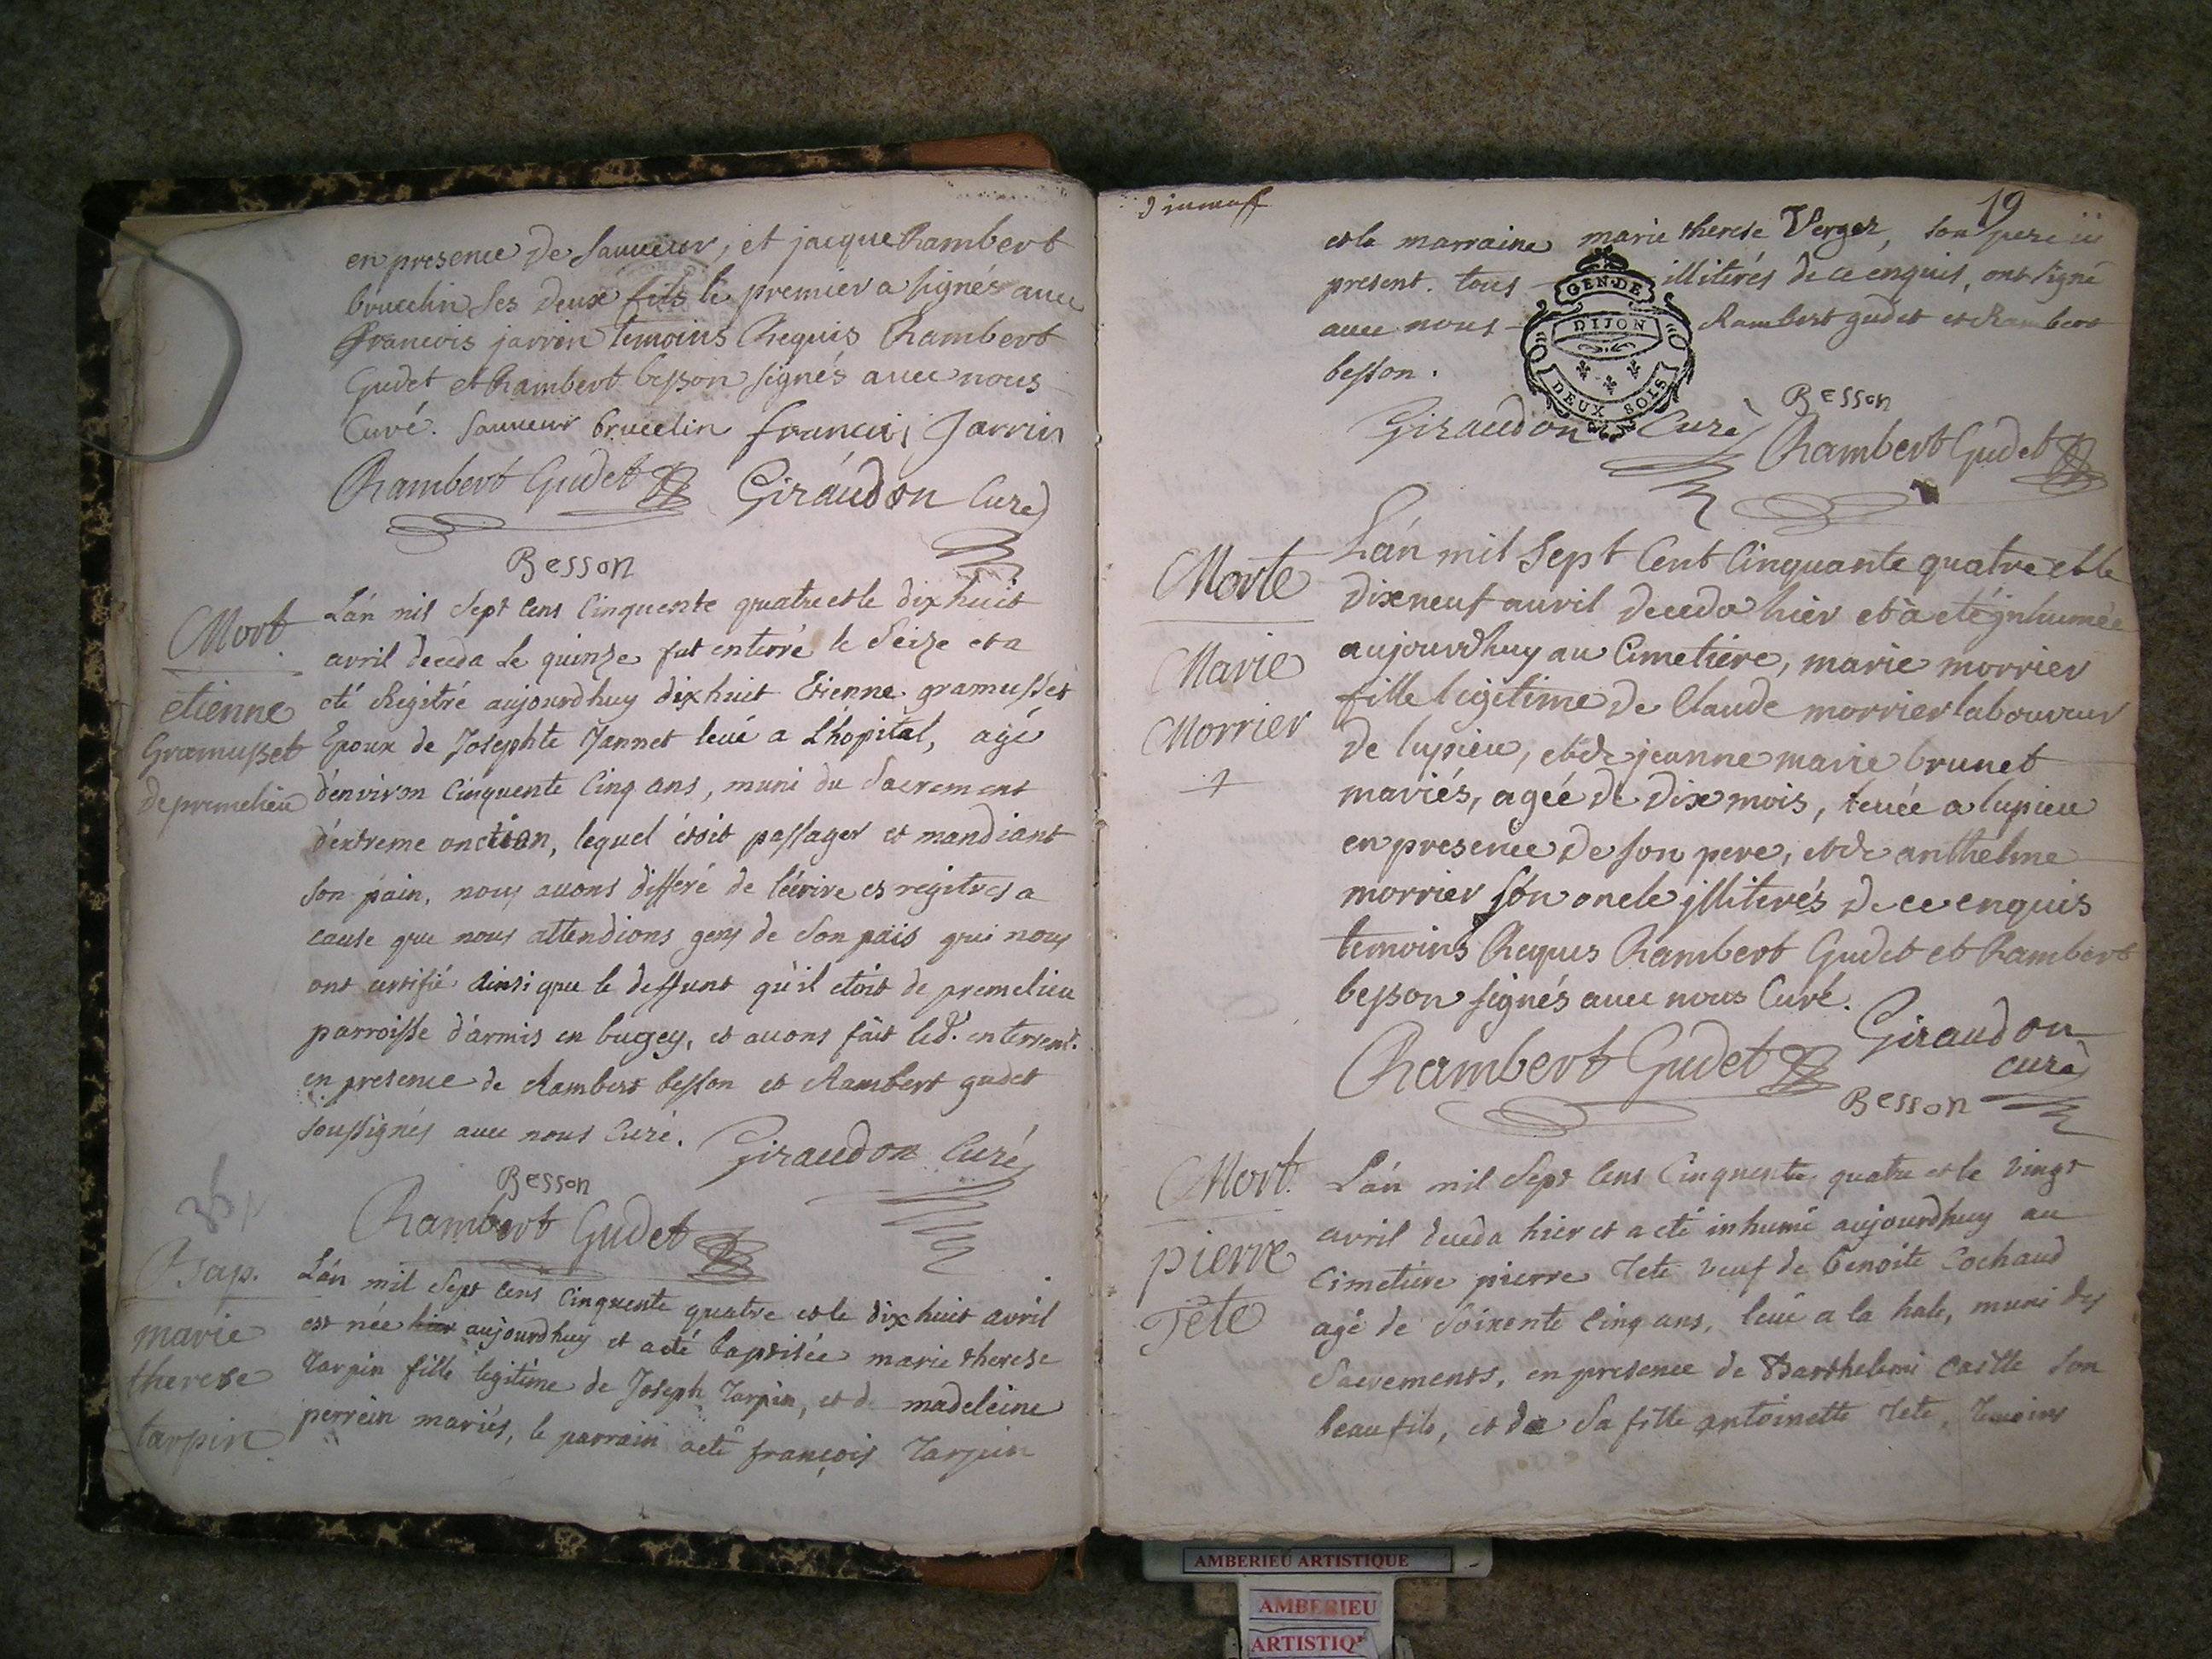 en presence de Sauveur, et jacque Rambert
brucelin ses deux fils le premier a signés avec
francois jarrin temoins Requis Rambert
Gudet et Rambert besson signés avec nous
Curé. Sauveur brucelin francois Jarrin
Rambert Gudet Giraudon Curé
Besson
Mort
etienne
Gramusset
de premelieu
L'án mil Sept Cens Cinquente quatre et le dix huit
avril deceda Le quinze fut enterré le Seize et a
eté Régitré aujourdhuy dix huit Etienne gramusset
Epoux de Josephte Jannet levé a L'hôpital, agé
d'environ Cinquente Cinq ans, muni du Sacrement
d'extreme onction, lequel étoit passager et mandiant
son pain, nous avons differé de l'écrire es regitres a
cause que nous attendions gens de Son païs qui nous
ont certifié ainsi que le deffunt qu'il etoit de premelieu
parroisse d'armis en bugey, et avons fait led. enterremt.
en presence de Rambert besson et Rambert gudet
soussignés avec nous Curé. Giraudon Curé
Besson
Rambert Gudet
Bap.
marie
therese
tarpin
L'án mil Sept Cens Cinquente quatre et le dix huit avril
est née hier aujourdhuy et a eté baptisée marie therese
Tarpin fille legitime de Joseph Tarpin, et de madeleine
perrein mariés, le parrain a eté françois Tarpin
19
et la marraine marie therese Verger, son pere ii
present. tous illitérés de ce enquis, ont signé
avec nous Rambert gudet et Rambert
besson.
GEN·DE
DIJON
DEUX SOLS
Besson
Giraudon Curé Rambert Gudet
Morte
Marie
Morrier
L'án mil Sept Cent Cinquante quatre et le
dix neuf avril deceda hier et à eté jnhumée
aujourdhuy au Cimetiere, marie morrier
fille legitime de Claude morrier laboureur
de lupieu, et de jeanne marie brunet
mariés, agée de dix mois, levée a lupieu
en presence de son pere, et de anthelme
morrier són oncle jlliterés de ce enquis
temoins Requis Rambert Gudet et Rambert
besson signés avec nous Curé.
Giraudon
curé
Rambert Gudet
Besson
Mort.
pierre
Tête
L'án mil Sept Cens Cinquente quatre et le vingt
avril deceda hier et a eté inhumé aujourdhuy au
Cimetiere pierre Tete veuf de benoite Cochaud
agé de Soixente Cinq ans, levé a la hale, muni des
Sacrements, en presence de Barthelemi Caille son
beau fils, et de Sa fille antoinette Tete, temoins
AMBERIEU ARTISTIQUE
AMBERIEU
ARTISTIQU